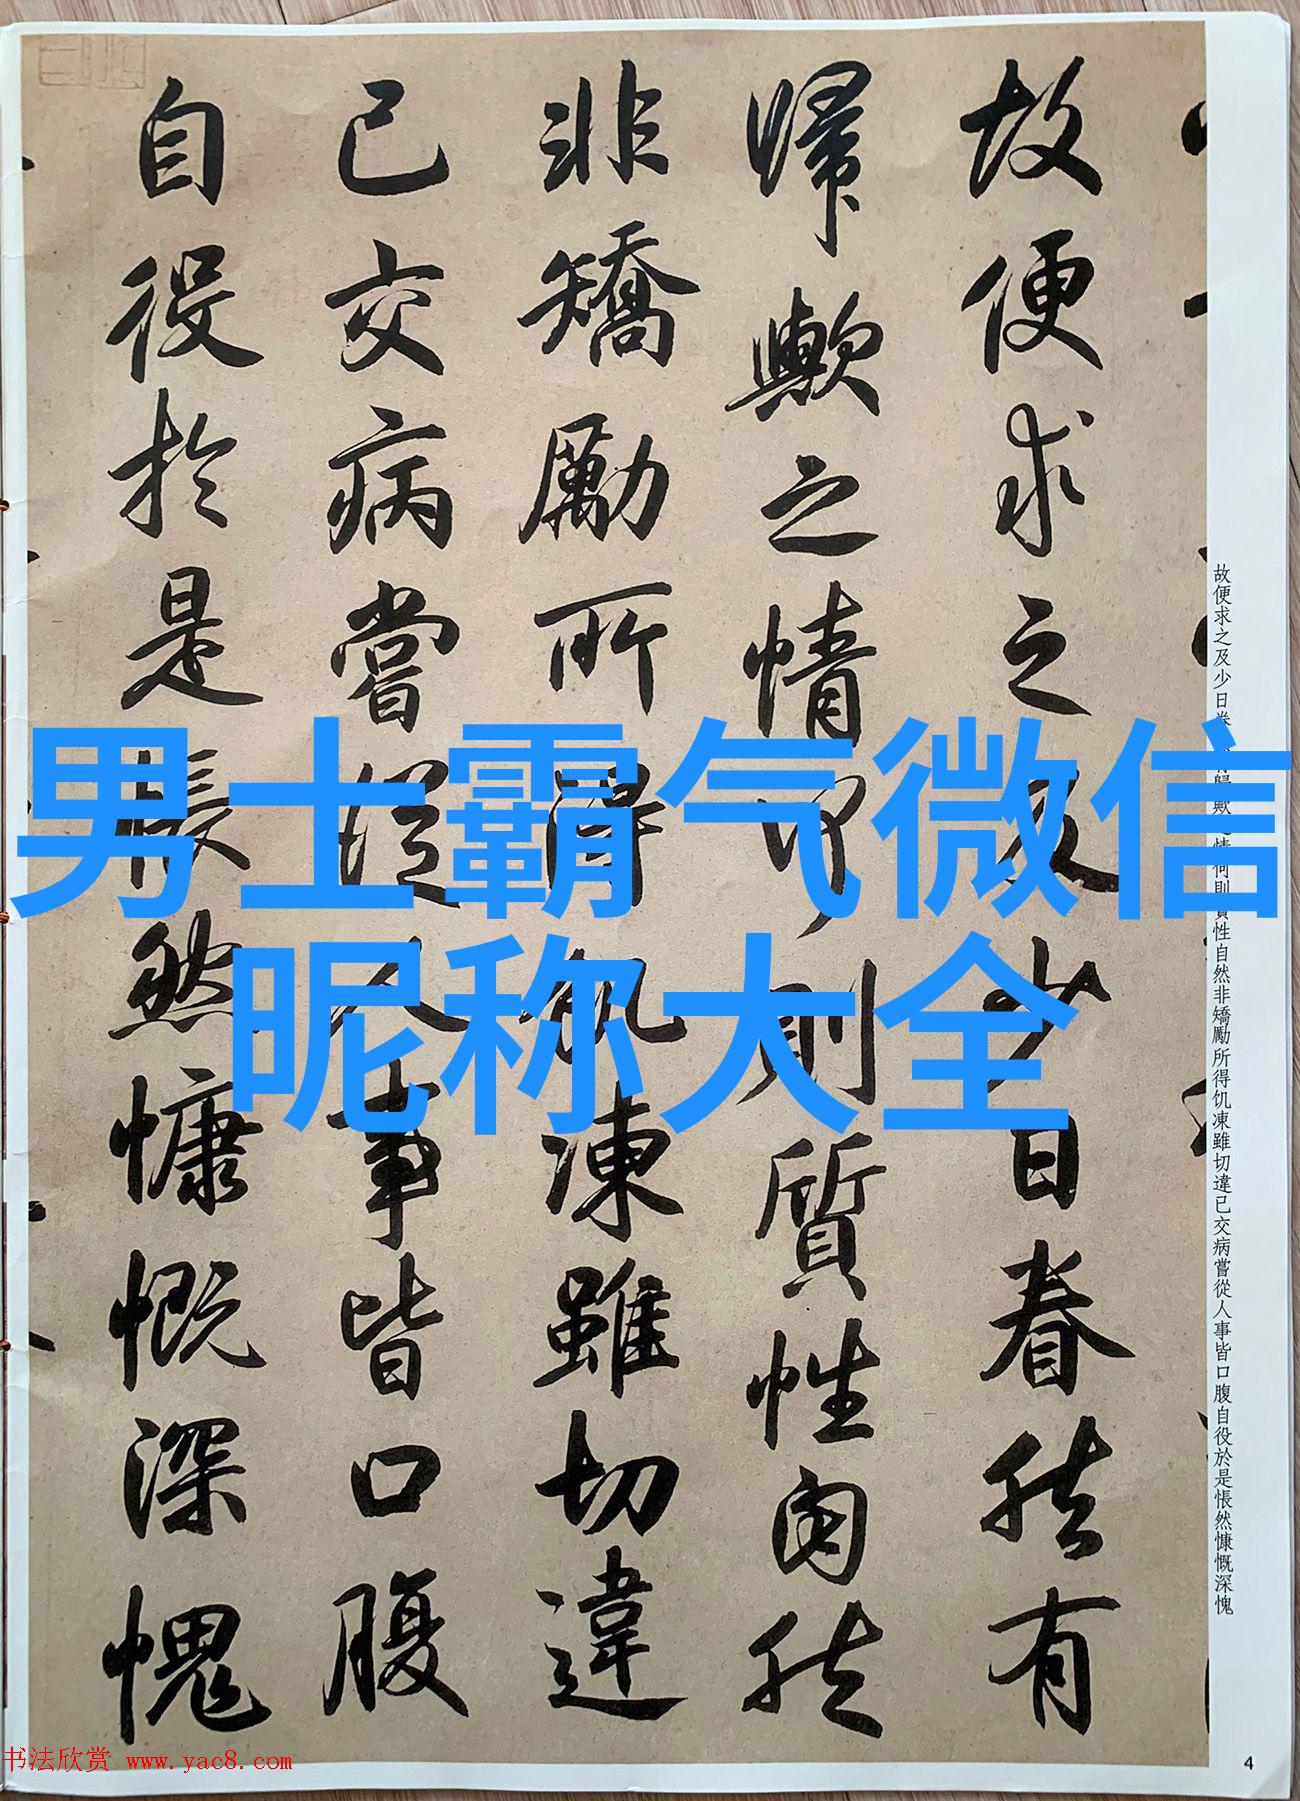 故便求之及少日眷然有
歸歟之情何則質性自然
非矯勵所得飢凍雖切違
已交病嘗從人事皆口腹
自役於是悵然慷慨深愧
男士霸气微信
昵称大全
故便求之及少日眷 歸歟之情何則質性自然非矯勵所得饥凍雖切違已交病嘗從人事皆口腹自役於是悵然慷慨深愧
书法欣赏 www.yac8.com
4